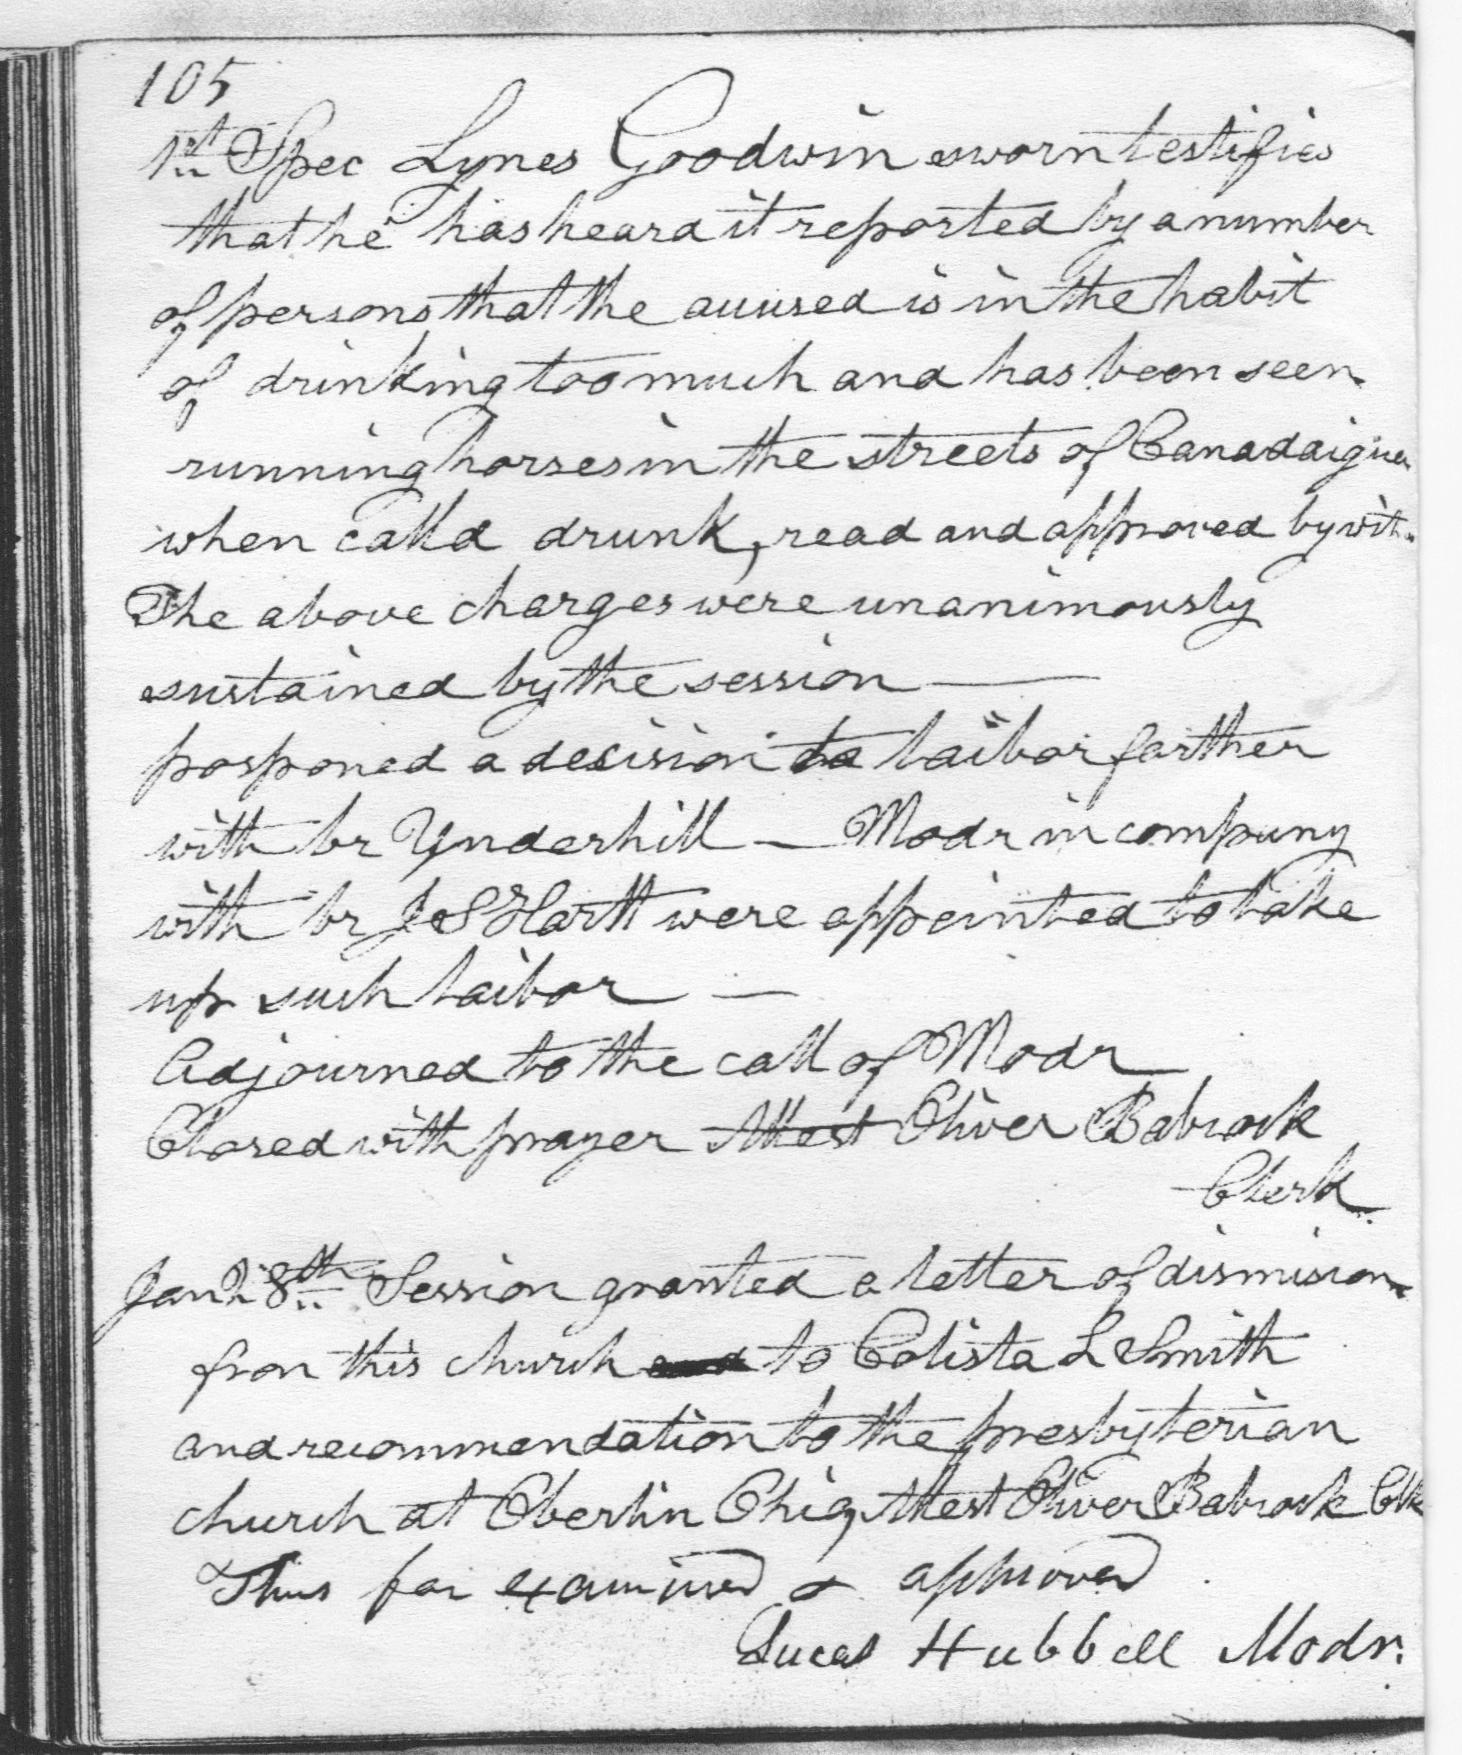 105
1st Spec Lynes Goodwin sworn testifies
that he has heard it reported by a number
of persons that the accused is in the habit
of drinking too much and has been seen
running horses in the streets of Canadaigua
when calld drunk, read and approved by wit.
The above charges were unanimously
sustained by the session —
posponed a decision to laibor farther
with br Underhill — Modr in company
with br J S Hartt were appointed to take
up such laibor —
Adjourned to the call of Modr
Closed with prayer Attest Oliver Babcock
Clerk
Jan 28th Session granted a letter of dismision
from this church to Calista L Smith
and recommendation to the presbyterian
church at Oberlin Ohio, Attest Oliver Babcock Clk
Thus far examined & approved
Lucas Hubbell Modr.